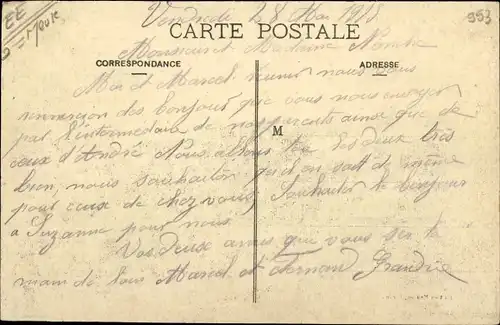 EE
953
Vendredi 28 Mai 1918
CARTE POSTALE
Monsieur et Madame
CORRESPONDANCE
ADRESSE
Moi et Marcel nous vous
remercion des bonjour que vous nous envoyer
par l'intermedaire de nos parents ainsi que de
M
ceux d'André Nous allons les deux très
bien, nous souhaiton qu'il en soit de même
pour ceux de chez vous, Souhaiter le bonjour
a Suzanne pour nous
Vos deux amis que vous ser la
main de loin Marcel et Fernand